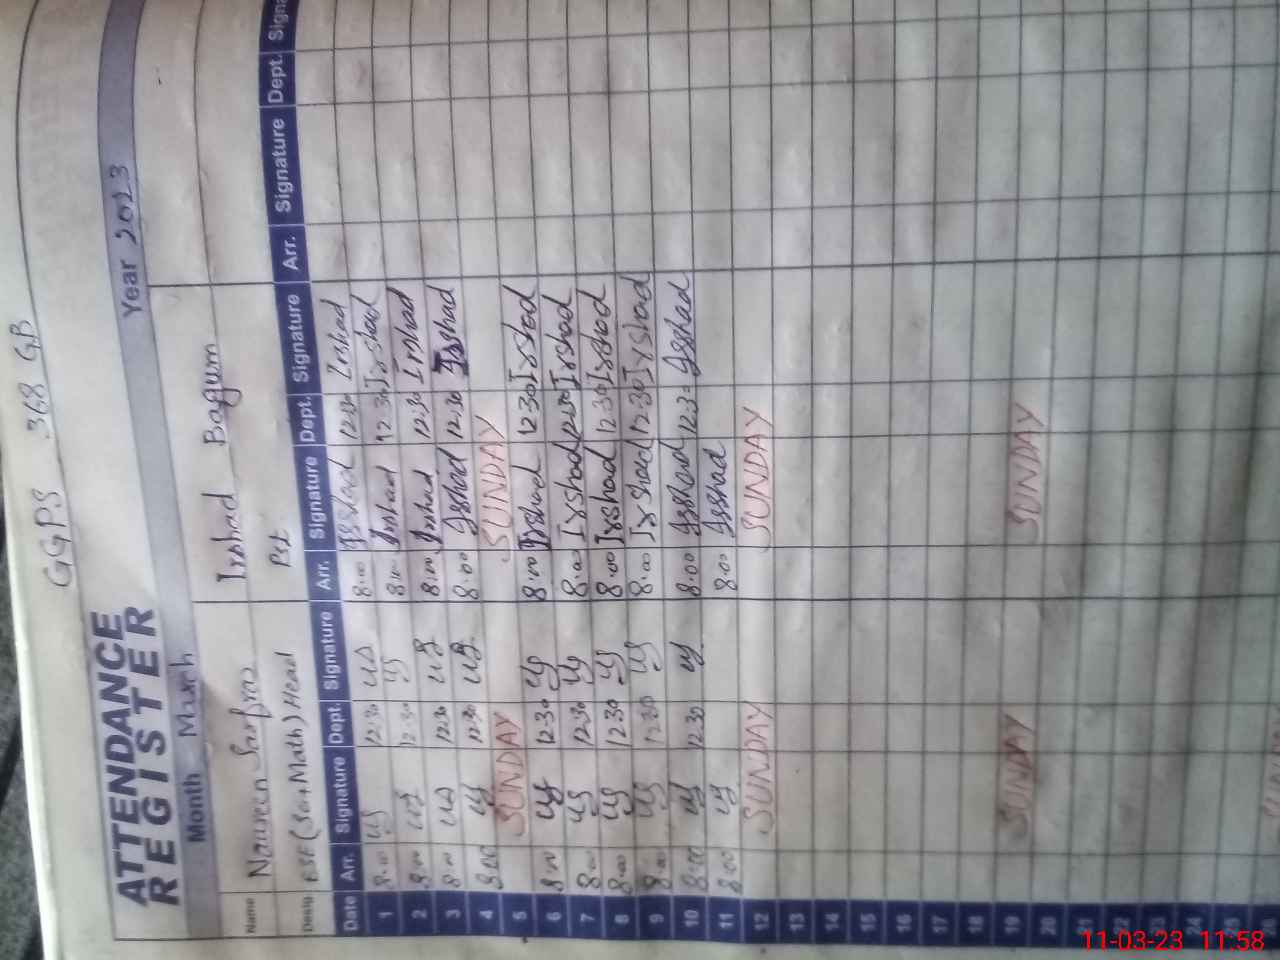 GGPS 368 GB
ATTENDANCE
REGISTER
Month March Year 2023
Name Naureen Sarfraz Irshad Bagum
Desig ESE (Sci+Math) Head Pst
Date Arr. Signature Dept. Signature Arr. Signature Dept. Signature Arr. Signature Dept. Signa
1 8:00 12:30 8:00 Irshad 12:30 Irshad
2 8:00 12:30 8:00 Irshad 12:30 Irshad
3 8:00 12:30 8:00 Irshad 12:30 Irshad
4 8:00 12:30 8:00 Irshad 12:30 Irshad
5 SUNDAY SUNDAY
6 8:00 12:30 8:00 Irshad 12:30 Irshad
7 8:00 12:30 8:00 Irshad 12:30 Irshad
8 8:00 12:30 8:00 Irshad 12:30 Irshad
9 8:00 12:30 8:00 Irshad 12:30 Irshad
10 8:00 12:30 8:00 Irshad 12:30 Irshad
11 8:00 8:00 Irshad
12 SUNDAY SUNDAY
13
14
15
16
17
18
19 SUNDAY SUNDAY
20
21
22
23
24
25
26
11-03-23 11:58